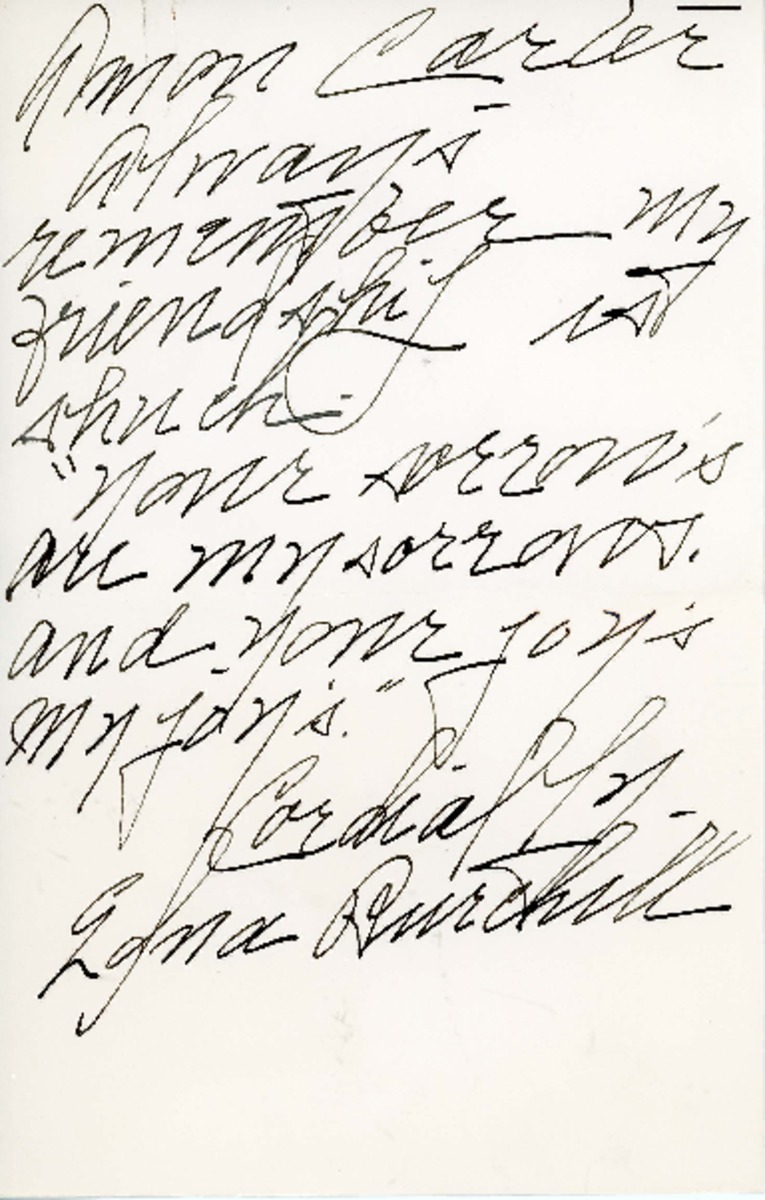 Amon Carter
Always
remember my
friendship is
shuch.
"Your sorrow's
are my sorrows.
and your joy's
my joy's."
Cordially.
Edna Burchill